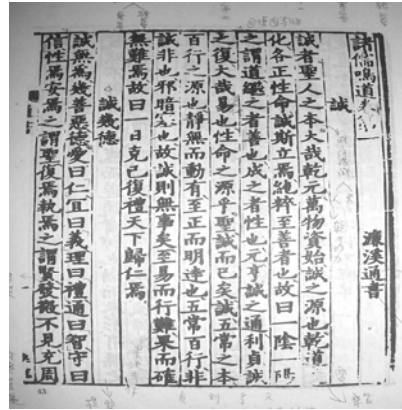 諸儒鳴道卷第一
濂溪通書
誠
誠者聖人之本大哉乾元萬物資始誠之源也乾道
化各正性命誠斯立焉純粹至善者也故曰一陰一陽
之謂道繼之者善也成之者性也元亨誠之通利貞誠
之復大哉易也性命之源乎聖誠而已矣誠五常之本
百行之源也靜無而動有至正而明達也五常百行非
誠非也邪暗塞也故誠則無事矣至易而行難果而確
無難焉故曰一日克己復禮天下歸仁焉
誠幾德
誠無為幾善惡德愛曰仁宜曰義理曰禮通曰智守曰
信性焉安焉之謂聖復焉執焉之謂賢發微不見充周